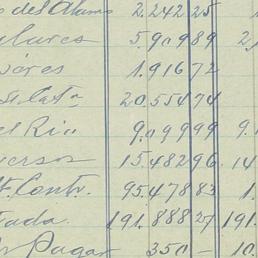 del Alamo 2,242 25
ulares 5,909 89 2,
ores 1,916 72
20,554 74
el Rio 9,099 99 9.
versos 15,482 96 14
Contr. 95,478 83 1.
tada. 191.888 27 191.
Pagar 350 — 10